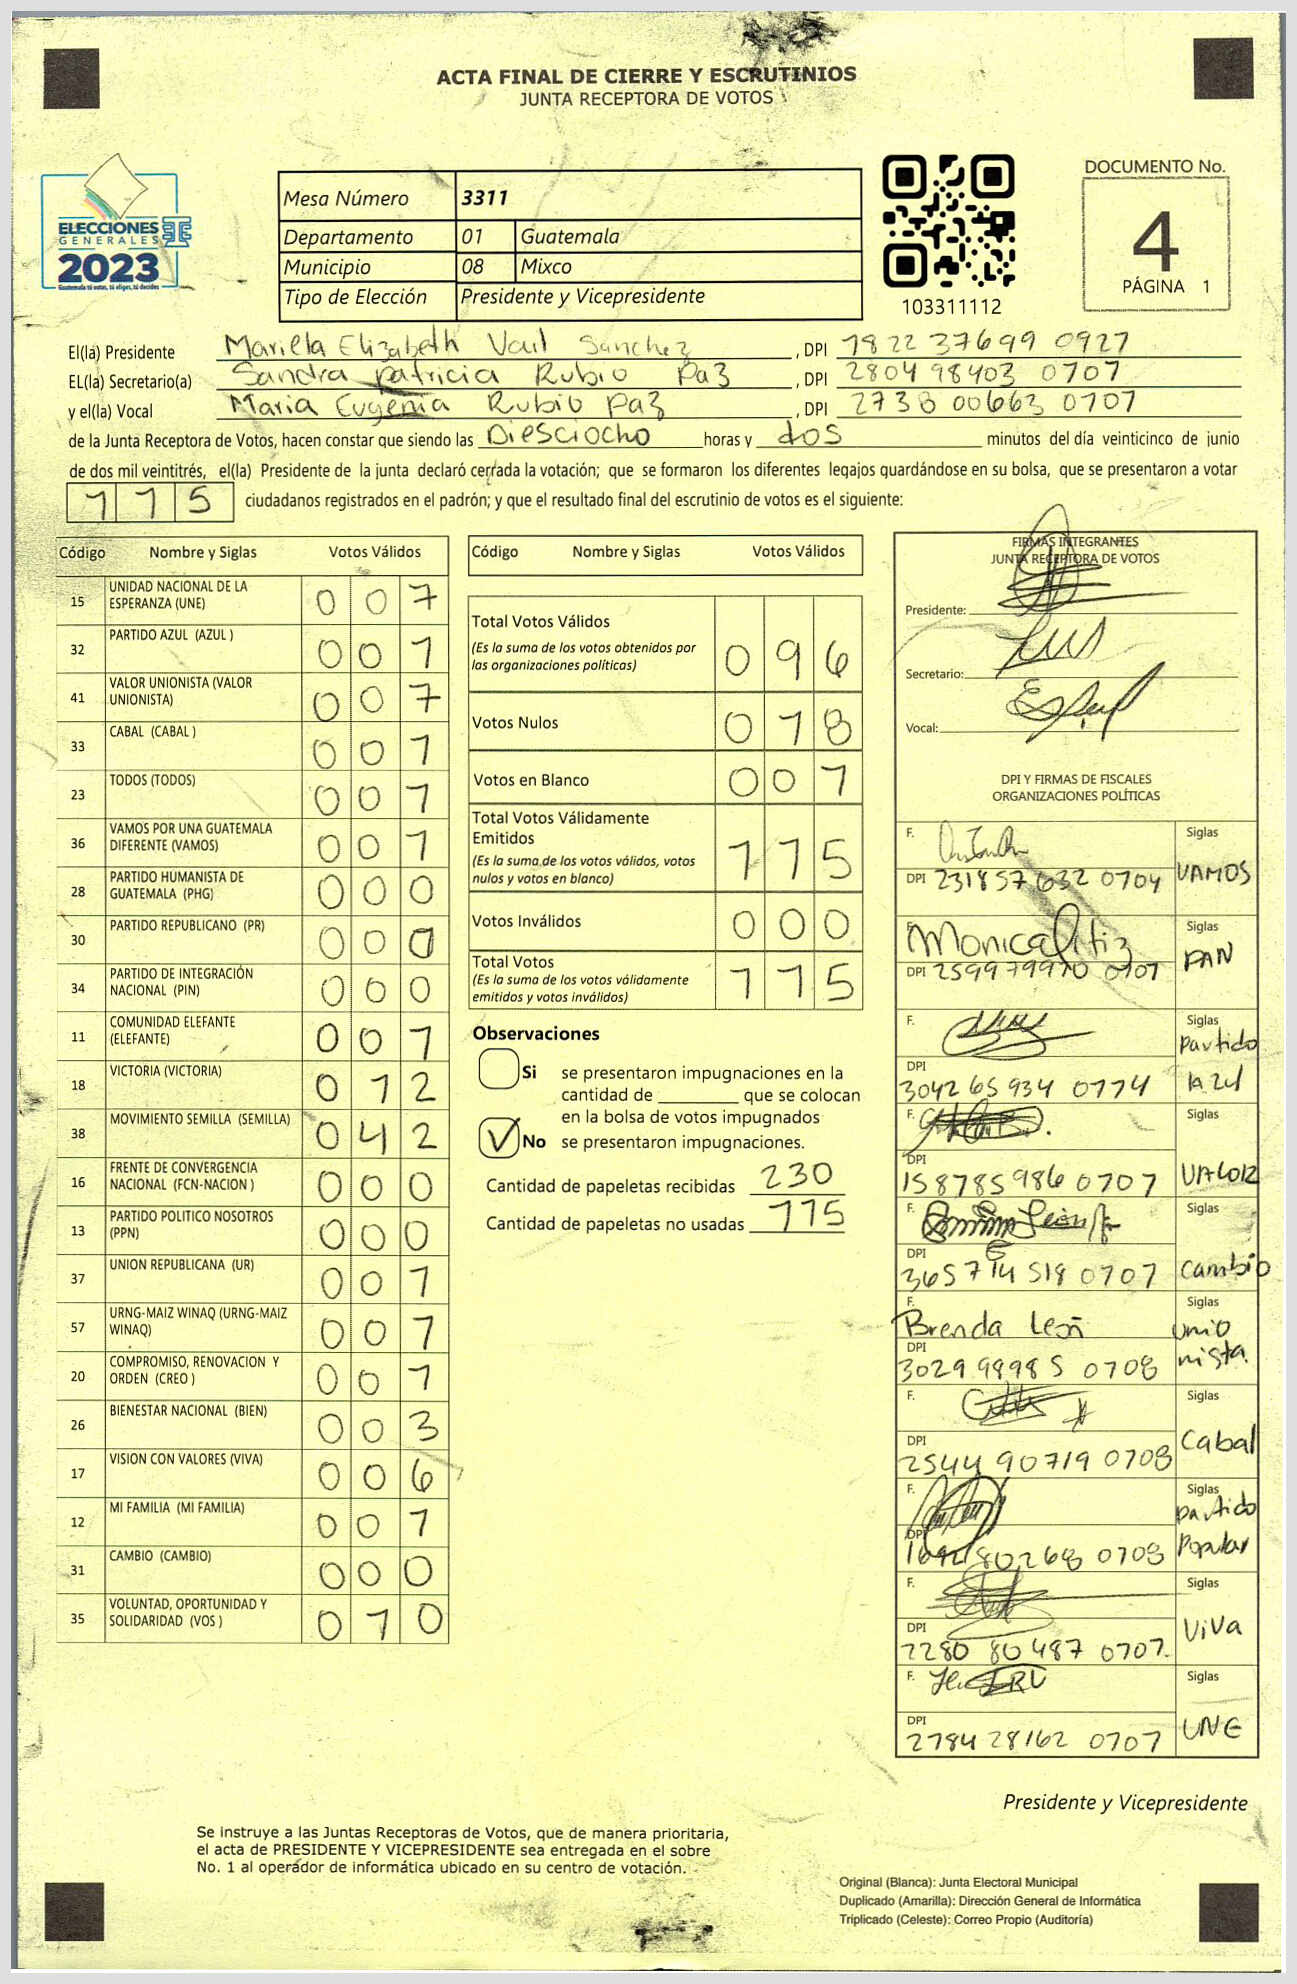 ACTA FINAL DE CIERRE Y ESCRUTINIOS
JUNTA RECEPTORA DE VOTOS
ELECCIONES
GENERALES
2023
Guatemala tú votas, tú eliges, tú decides
Mesa Número 3311
Departamento 01 Guatemala
Municipio 08 Mixco
Tipo de Elección Presidente y Vicepresidente
103311112
DOCUMENTO No.
4
PÁGINA 1
El(la) Presidente Mariela Elizabeth Vail Sanchez, DPI 1822 37699 0921
EL(la) Secretario(a) Sandra patricia Rubio Paz, DPI 2804 98403 0101
y el(la) Vocal Maria Eugenia Rubio Paz, DPI 2738 00663 0101
de la Junta Receptora de Votos, hacen constar que siendo las Diesciocho horas y dos minutos del día veinticinco de junio
de dos mil veintitrés, el(la) Presidente de la junta declaró cerrada la votación; que se formaron los diferentes legajos guardándose en su bolsa, que se presentaron a votar
115 ciudadanos registrados en el padrón; y que el resultado final del escrutinio de votos es el siguiente:
Código Nombre y Siglas Votos Válidos
15 UNIDAD NACIONAL DE LA ESPERANZA (UNE) 007
32 PARTIDO AZUL (AZUL ) 001
41 VALOR UNIONISTA (VALOR UNIONISTA) 007
33 CABAL (CABAL ) 001
23 TODOS (TODOS) 001
36 VAMOS POR UNA GUATEMALA DIFERENTE (VAMOS) 001
28 PARTIDO HUMANISTA DE GUATEMALA (PHG) 000
30 PARTIDO REPUBLICANO (PR) 000
34 PARTIDO DE INTEGRACIÓN NACIONAL (PIN) 000
11 COMUNIDAD ELEFANTE (ELEFANTE) 001
18 VICTORIA (VICTORIA) 012
38 MOVIMIENTO SEMILLA (SEMILLA) 042
16 FRENTE DE CONVERGENCIA NACIONAL (FCN-NACION ) 000
13 PARTIDO POLITICO NOSOTROS (PPN) 000
37 UNION REPUBLICANA (UR) 001
57 URNG-MAIZ WINAQ (URNG-MAIZ WINAQ) 001
20 COMPROMISO, RENOVACION Y ORDEN (CREO ) 001
26 BIENESTAR NACIONAL (BIEN) 003
17 VISION CON VALORES (VIVA) 006
12 MI FAMILIA (MI FAMILIA) 001
31 CAMBIO (CAMBIO) 000
35 VOLUNTAD, OPORTUNIDAD Y SOLIDARIDAD (VOS ) 010
Código Nombre y Siglas Votos Válidos
Total Votos Válidos
(Es la suma de los votos obtenidos por
las organizaciones políticas) 096
Votos Nulos 018
Votos en Blanco 001
Total Votos Válidamente
Emitidos
(Es la suma de los votos válidos, votos
nulos y votos en blanco) 115
Votos Inválidos 000
Total Votos
(Es la suma de los votos válidamente
emitidos y votos inválidos) 115
Observaciones
Si se presentaron impugnaciones en la
cantidad de ________ que se colocan
en la bolsa de votos impugnados
No se presentaron impugnaciones.
Cantidad de papeletas recibidas 230
Cantidad de papeletas no usadas 115
FIRMAS INTEGRANTES
JUNTA RECEPTORA DE VOTOS
Presidente:
Secretario:
Vocal:
DPI Y FIRMAS DE FISCALES
ORGANIZACIONES POLÍTICAS
F. Siglas
DPI 2318 57632 0104 VAMOS
F. Monica Ortiz Siglas
DPI 2599 79970 0101 PAN
F. Siglas
DPI 3042 65934 0114 Partido Azul
F. Siglas
DPI 1587 85986 0101 VALOR
F. Siglas
DPI 3657 14518 0101 Cambio
F. Brenda León Siglas
DPI 3029 98985 0108 unio nista.
F. Siglas
DPI 2544 90719 0108 Cabal
F. Siglas
DPI 1692 80268 0108 Partido Popular
F. Siglas
DPI 2280 80487 0101. ViVa
F. Siglas
DPI 2784 28162 0101 UNE
Presidente y Vicepresidente
Se instruye a las Juntas Receptoras de Votos, que de manera prioritaria,
el acta de PRESIDENTE Y VICEPRESIDENTE sea entregada en el sobre
No. 1 al operador de informática ubicado en su centro de votación.
Original (Blanca): Junta Electoral Municipal
Duplicado (Amarilla): Dirección General de Informática
Triplicado (Celeste): Correo Propio (Auditoría)